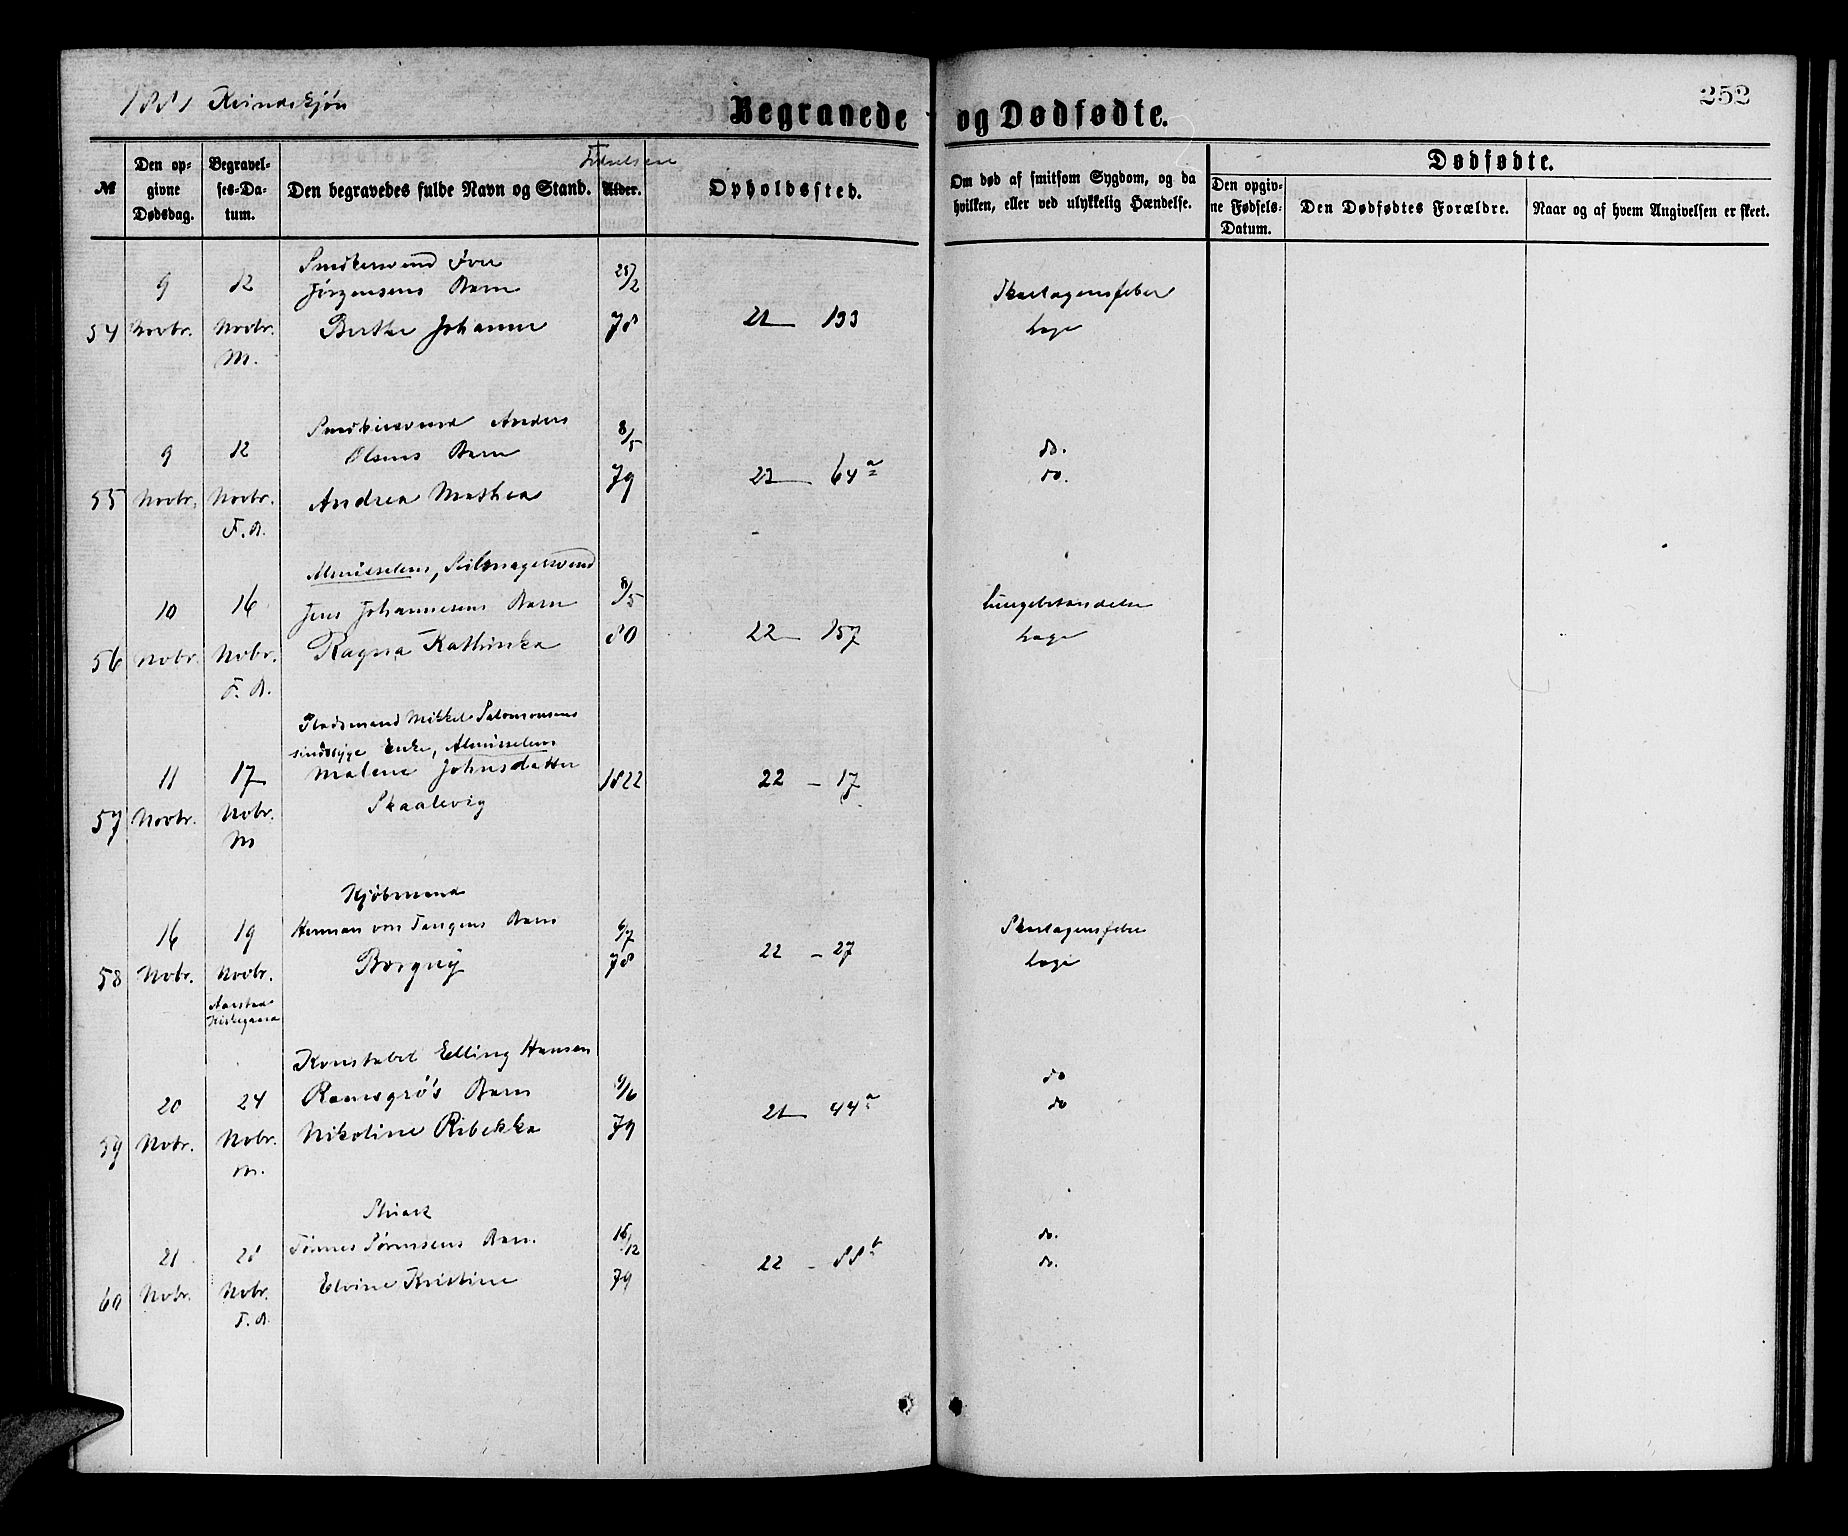 1881 Kvindekjøn
Begravede og Dødfødte.
252
№
Den opgivne Dødsdag.
Begravelses-Datum.
Den begravedes fulde Navn og Stand.
Fødselsaar
Alder.
Opholdssted.
Om død af smitsom Sygdom, og da hvilken, eller ved ulykkelig Hændelse.
Dødfødte.
Den opgivne Fødsels-Datum.
Den Dødfødtes Forældre.
Naar og af hvem Angivelsen er skeet.
Snedkersvend Iver
9 12 Jørgensens Barn 28/2 Skarlagensfeber
54 Novbr. Novbr. Berthe Johanne 78 21 — 133 Læge
M.
Snedkersvend Anders
9 12 Olsens Barn 8/5 do.
55 Novbr. Novbr. Andrea Mathea 79 22 — 64 a do.
F. A.
Almisselem, Seilmagersvend
10 16 Jens Johannesens Barn 8/5 Lungebetændelse
56 Novbr. Nobr. Ragna Kathinka 80 22 — 157 Læge
F. A.
Pladsmand Mikkel Salomonsens
sindssyge Enke, Almisselem
11 17 Malene Johnsdatter 1822 22 – 17
57 Novbr. Nobr. Skaalevig
M
Kjøbmand
16 19 Herman von Tangens Barn 6/7 Skarlagensfeber
58 Nobr. Novbr. Borgny 78 22 – 27 Læge
Aarstad
Kirkegaard
Konstabel Elling Hansen
20 24 Ramsgrø's Barn 9/6 do
59 Nobr. Nobr. Nikoline Ribekka 79 21 — 44 a do
M.
21 28 Tønnes Sørensens Barn. 16/12 do.
60 Nobr. Nobr. Elvine Kristine 79 22 – 88 b do.
F. A.